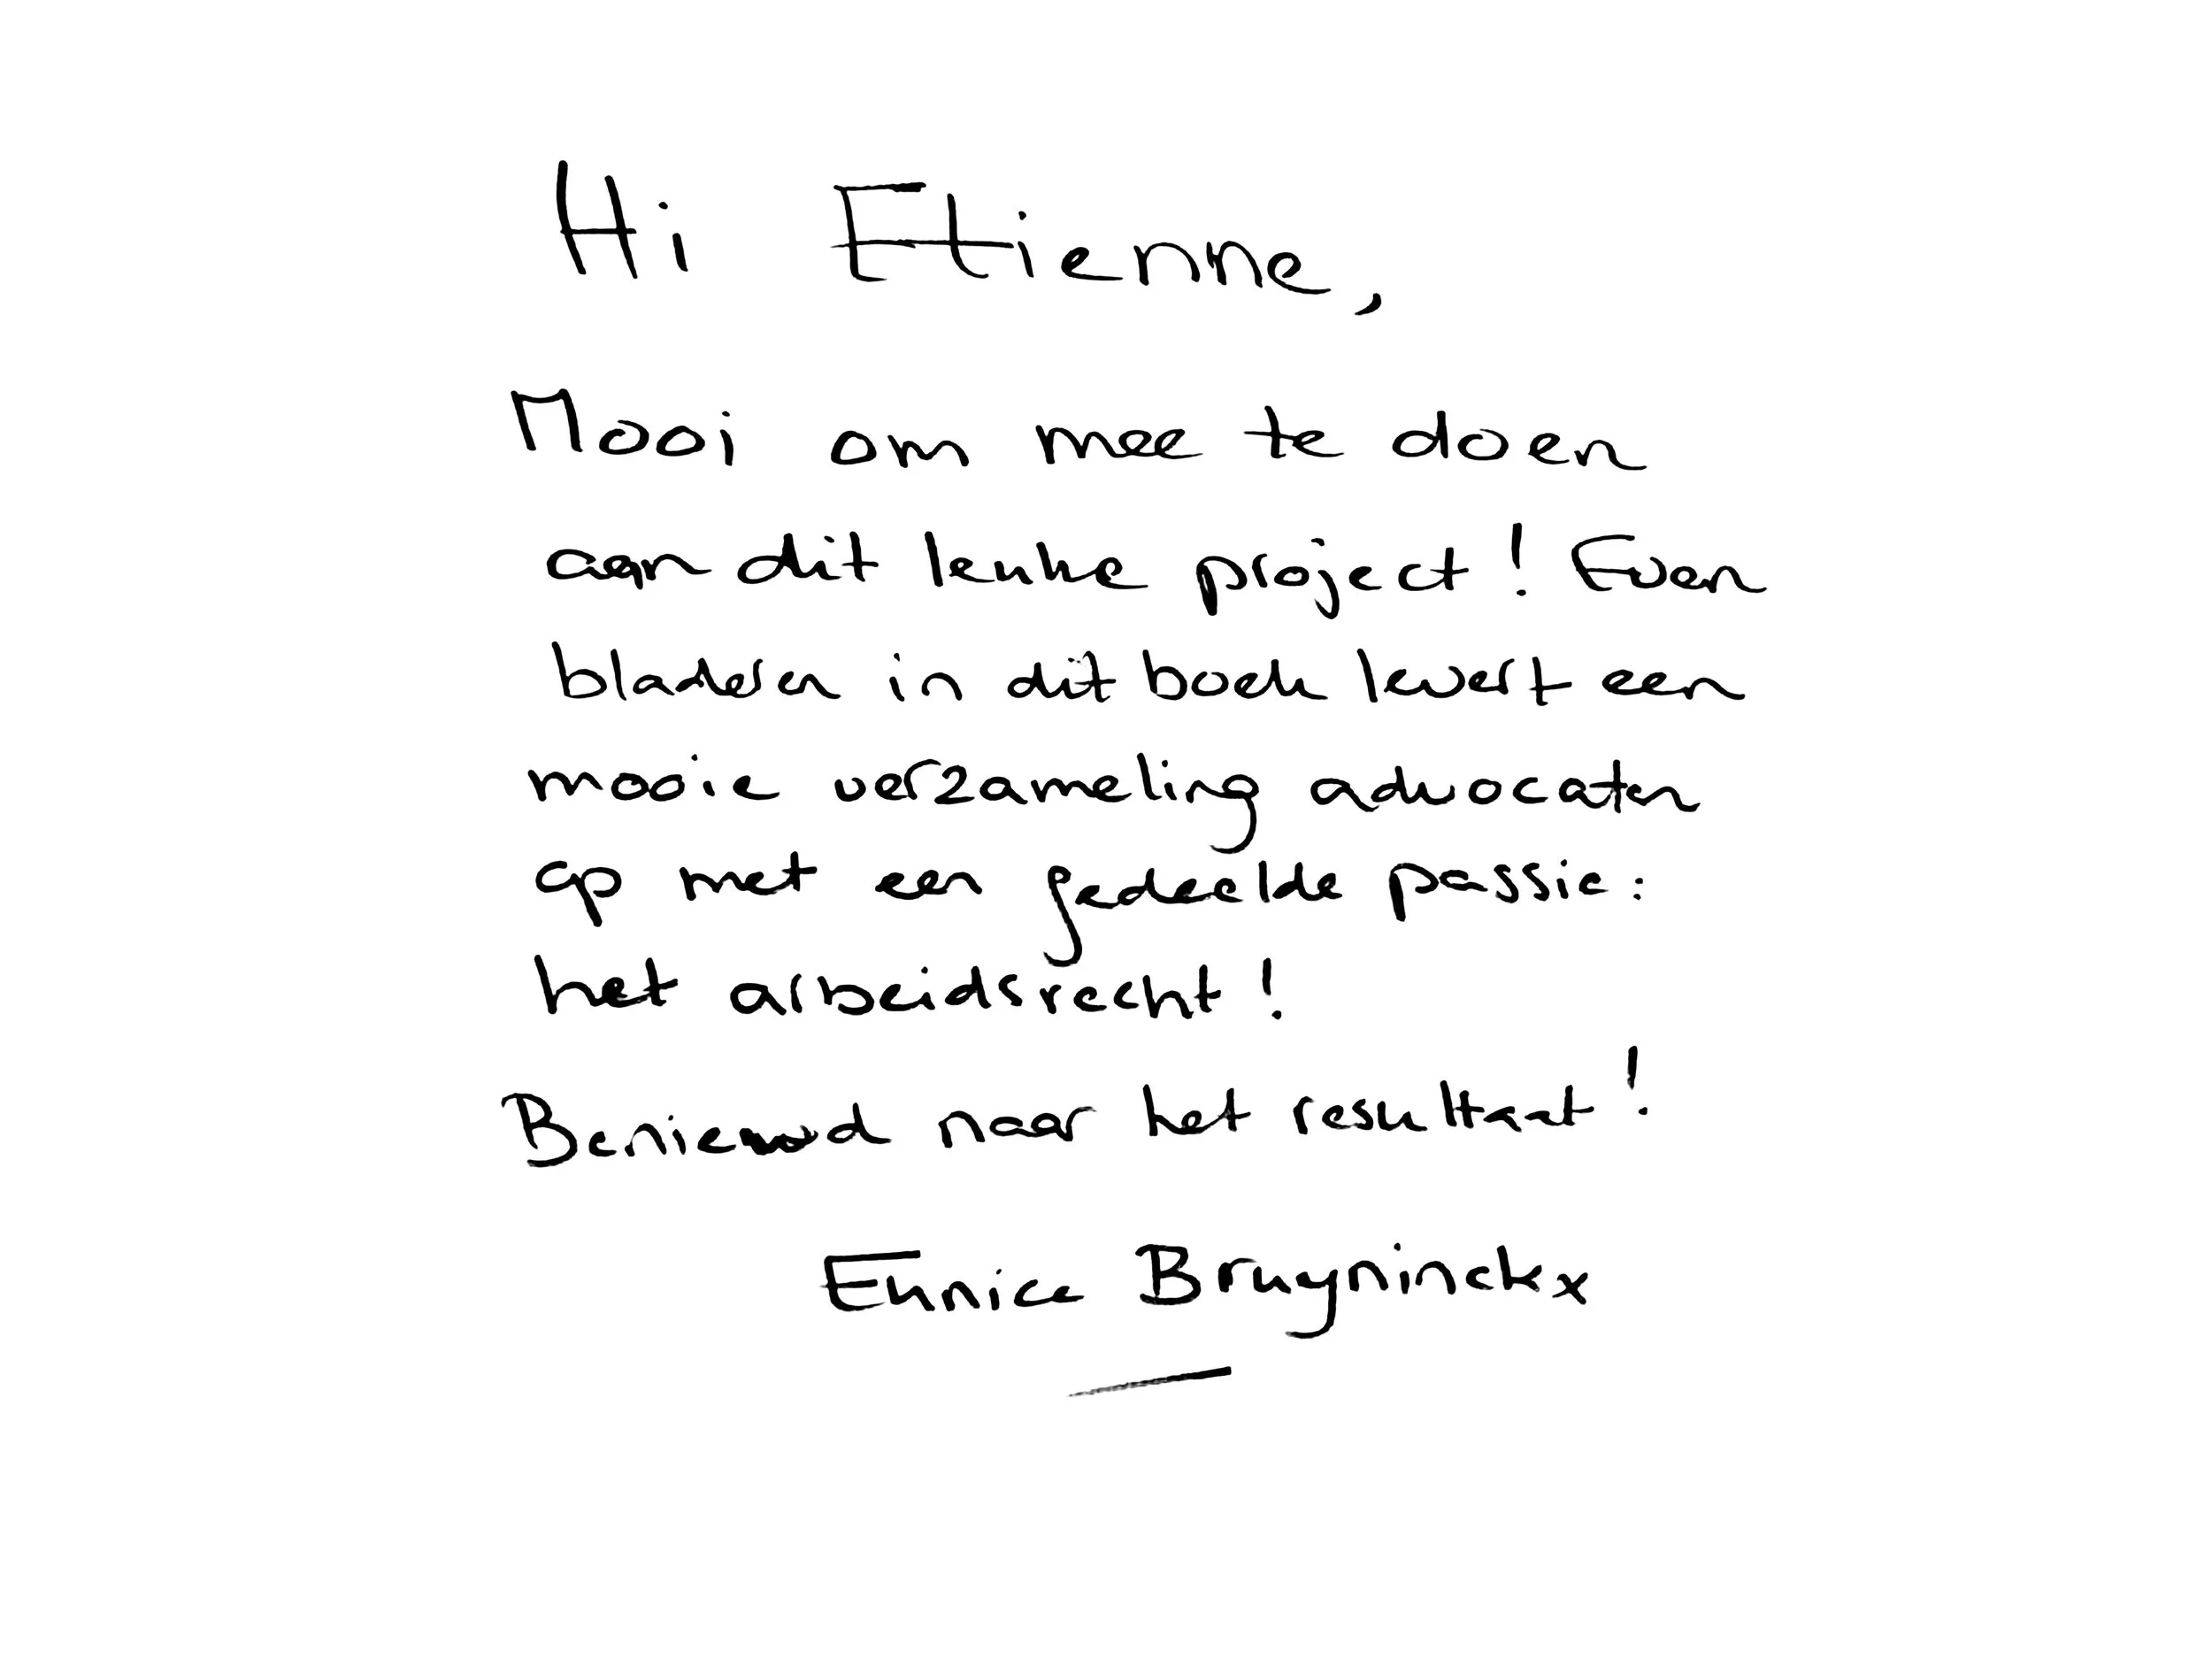 Hi Etienne,
Mooi om mee te doen
aan dit leuke project! Even
bladeren in dit boek levert een
mooie verzameling advocaten
op met een gedeelde passie:
het arbeidsrecht!
Benieuwd naar het resultaat!
Eunice Bruyninckx